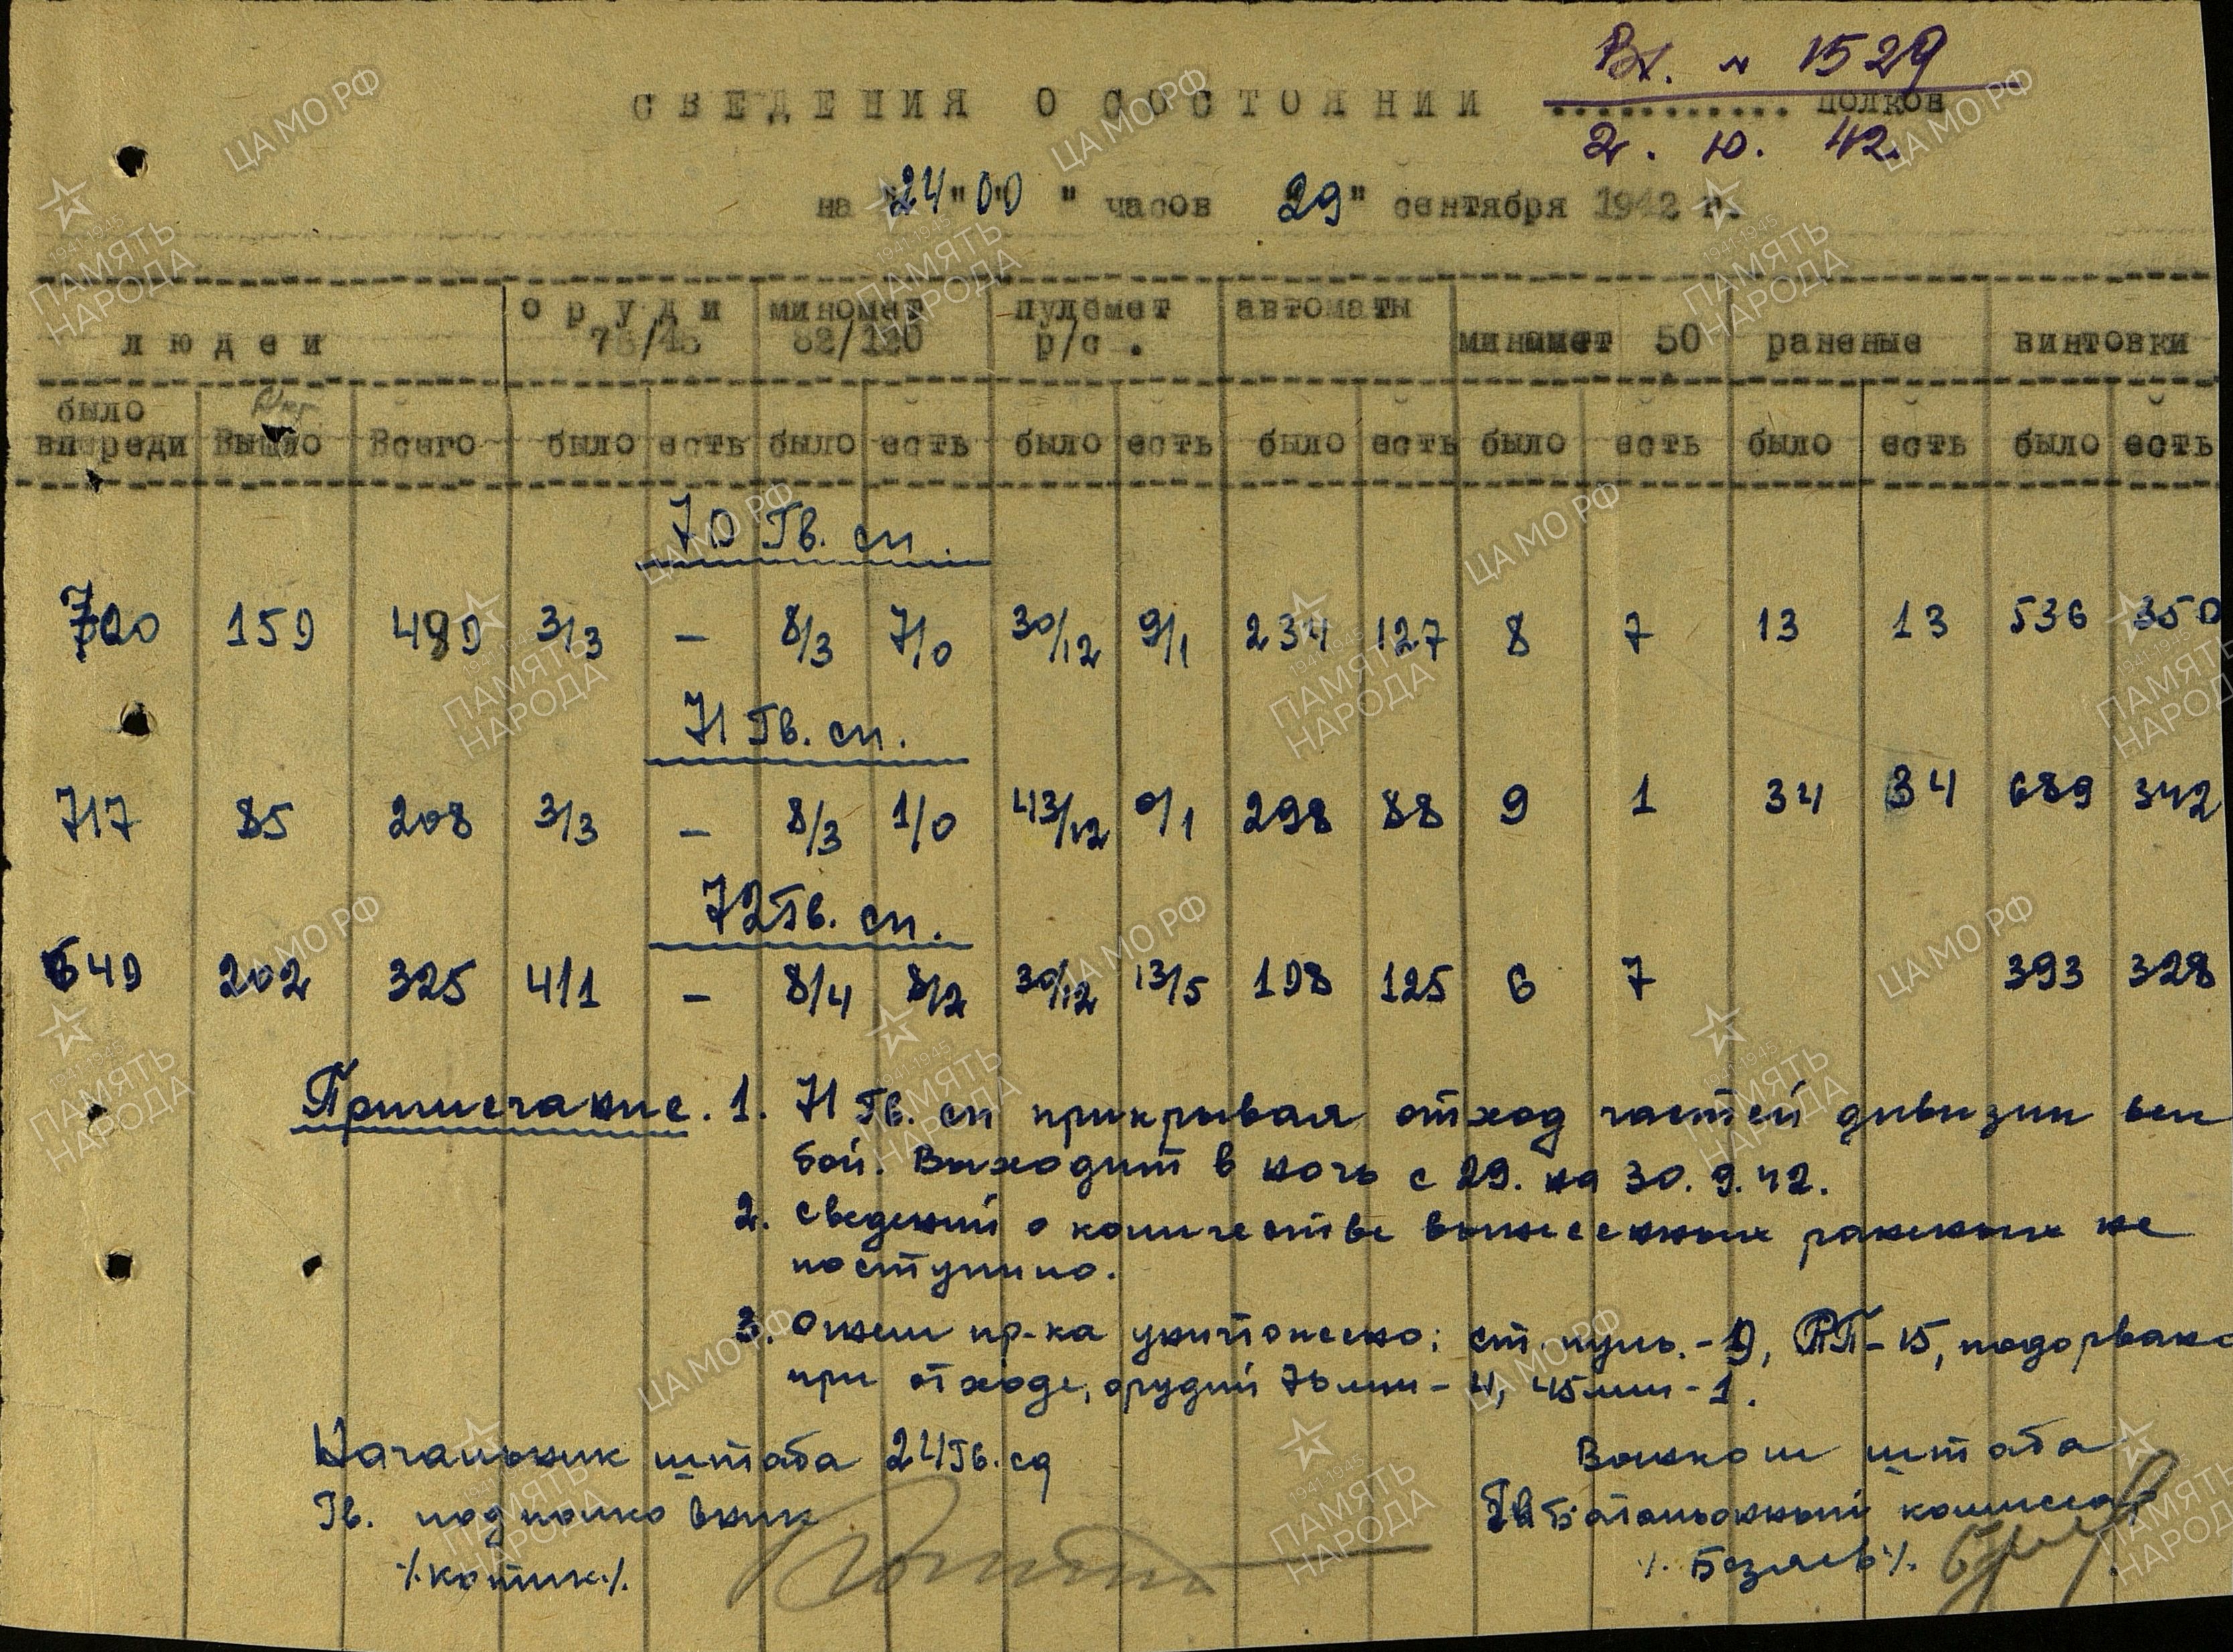 Вх. № 1529
СВЕДЕНИЯ О СОСТОЯНИИ ........... полков
2. 10. 42.
на "24" 00 " часов 29" сентября 1942 г.
людей орудий 76/45 миномет 82/120 пулемет р/с. автоматы миномет 50 раненые винтовки
было впереди Вышло Всего было есть было есть было есть было есть было есть было есть было есть
70 Гв. сп.
720 159 489 3/3 – 8/3 7/0 30/12 9/1 234 127 8 7 13 13 536 350
71 Гв. сп.
717 85 208 3/3 – 8/3 1/0 43/12 0/1 298 88 9 1 34 34 689 342
72 Гв. сп.
649 202 325 4/1 – 8/4 8/2 30/12 13/5 198 125 6 7 393 328
Примечание. 1. 71 Гв. сп прикрывая отход частей дивизии вел
бой. Выходит в ночь с 29. на 30. 9. 42.
2. Сведений о количестве вынесенных раненых не
поступило.
3. Огнем пр-ка уничтожено: ст. пуль. - 19, РП - 15, подорвано
при отходе, орудий 76 мм - 4, 45 мм - 1.
Начальник штаба 24 Гв. сд
Гв. подполковник
/. Котик ./
Военком штаба
Гв. Батальонный комиссар
/. Безяев ./
ЦАМО РФ
1941-1945
ПАМЯТЬ
НАРОДА